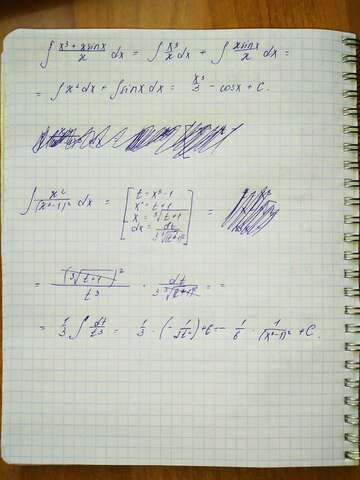 ∫ (x³ + x sinx)/x dx = ∫ x³/x dx + ∫ (x sinx)/x dx =
= ∫ x² dx + ∫ sinx dx = x³/3 - cosx + C.
∫ x²/(x³-1)³ dx = [ t = x³-1
x³ = t+1
x = ³√(t+1)
dx = dt/(3 ³√(t+1)²) ] =
= (³√(t+1))²/t³ · dt/(3 ³√(t+1)²) = =
= 1/3 ∫ dt/t³ = 1/3 · (- 1/(2t²)) + C = - 1/6 · 1/(x³-1)² + C.